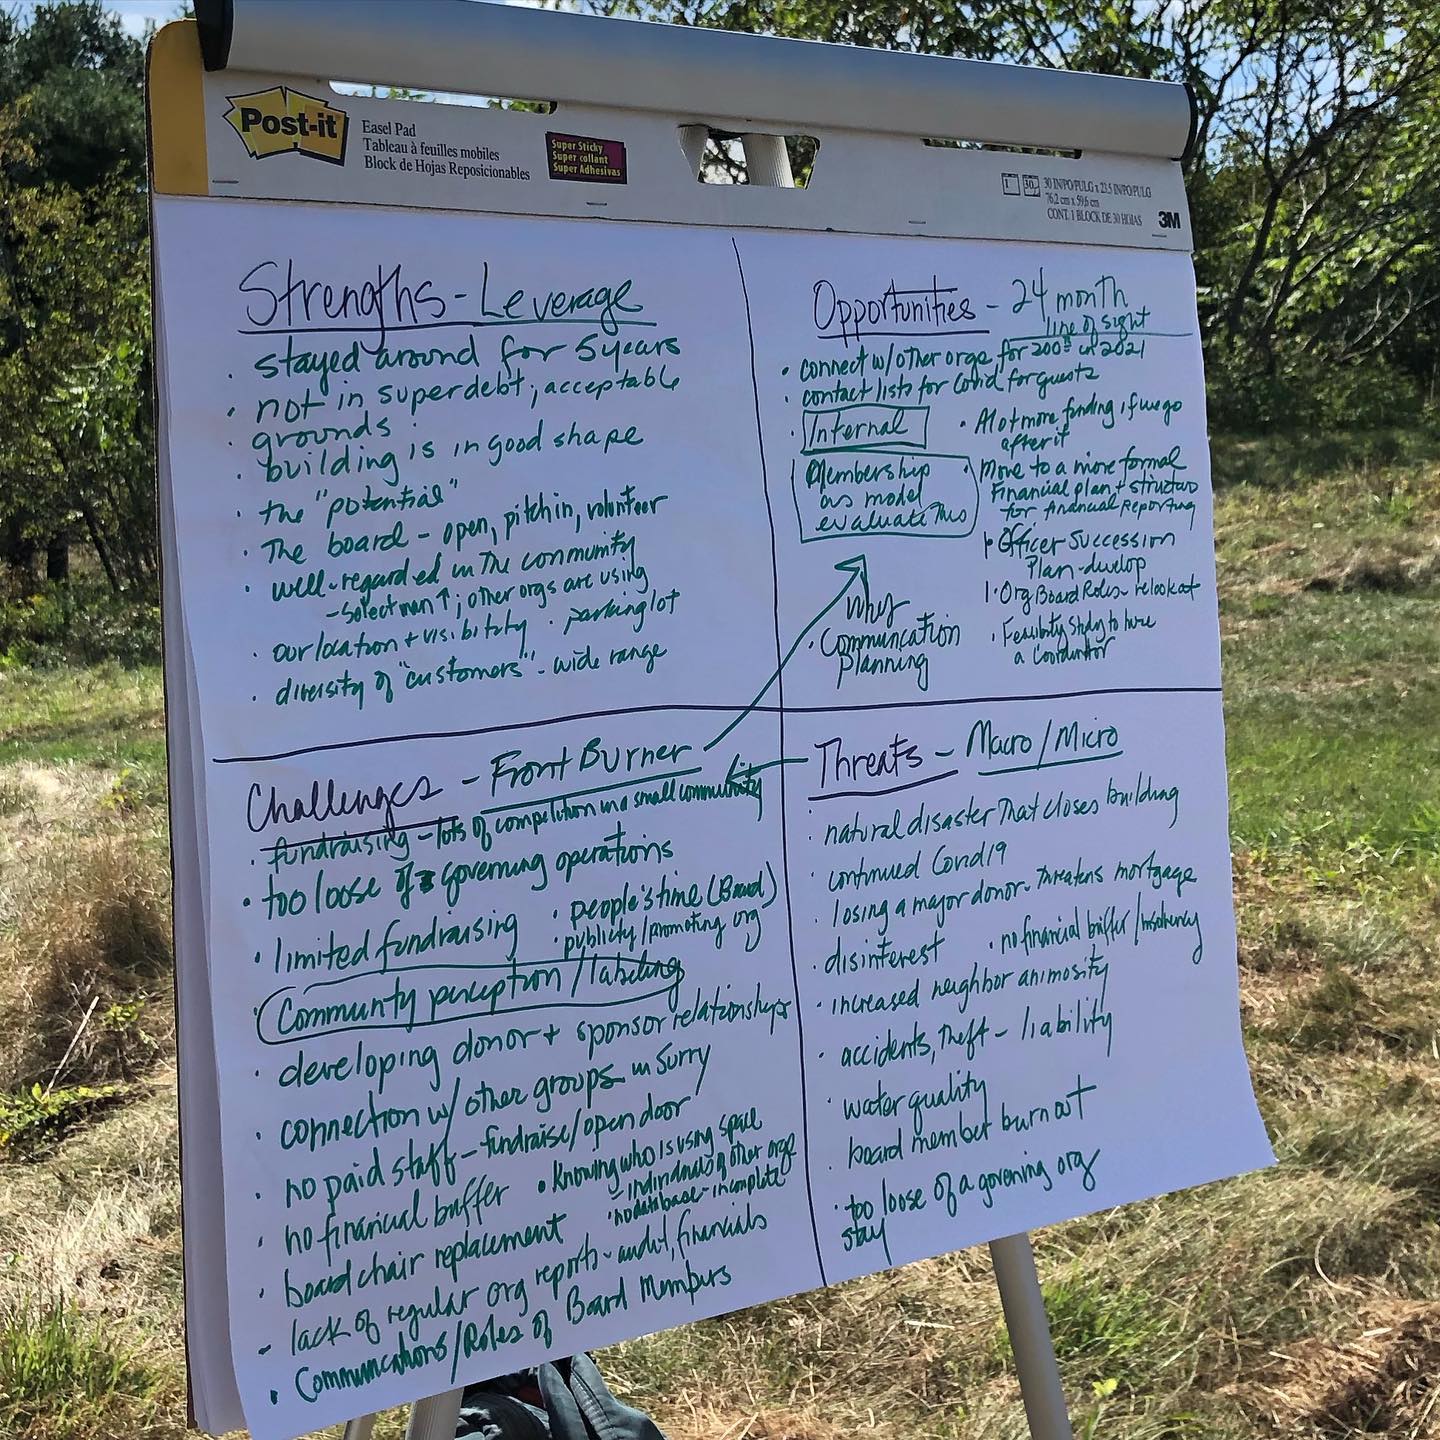 Post-it
Easel Pad
Tableau à feuilles mobiles
Block de Hojas Reposicionables
Super Sticky
Super collant
Super Adhesivas
30 IN/PO/PULG x 23.5 IN/PO/PULG
76,2 cm x 59,6 cm
CONT. 1 BLOCK DE 30 HOJAS
3M
Strengths - Leverage
· stayed around for 5 years
· not in superdebt; acceptable
· grounds
· building is in good shape
· the "potential"
· The board - open, pitch in, volunteer
· well-regarded in the community
- selectman ↑; other orgs are using
· our location + visibility · parking lot
· diversity of "customers" - wide range
Opportunities - 24 month
line of sight
· connect w/ other orgs for 200th in 2021
· contact lists for Covid for guests
· Internal
Membership
as model
evaluate this
· A lot more funding if we go
after it
· Move to a more formal
Financial plan + structure
for financial reporting
· Officer Succession
Plan - develop
· Org Board Roles - relook at
· Feasibility Study to hire
a coordinator
Why
· Communication
planning
Challenges - Front Burner
· fundraising - lots of competition in a small community
· too loose of governing operations
· limited fundraising
· people's time (Board)
· publicity/promoting org
· Community perception/labeling
· developing donor + sponsor relationships
· connection w/ other groups in Surry
· no paid staff - fundraise/open door
· no financial buffer
· Knowing who is using space
- individuals of other orgs
· no database - incomplete
· board chair replacement
- lack of regular org reports - audit, financials
· Communications/Roles of Board Members
Threats - Macro/Micro
· natural disaster that closes building
· continued Covid19
· losing a major donor - threatens mortgage
· disinterest
· no financial buffer/insolvency
· increased neighbor animosity
· accidents, theft - liability
· water quality
· board member burn out
· too loose of a governing org
stay